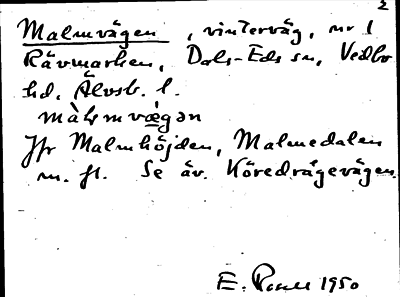 2
Malmvägen, vinterväg, nr 1
Rävmarken, Dals-Eds sn, Vedbo
hd, Älvsb. l.
màlmvæ̀gən
Jfr Malmhöjden, Malmedalen
m. fl. Se äv. Köredrågevägen.
E. 1950